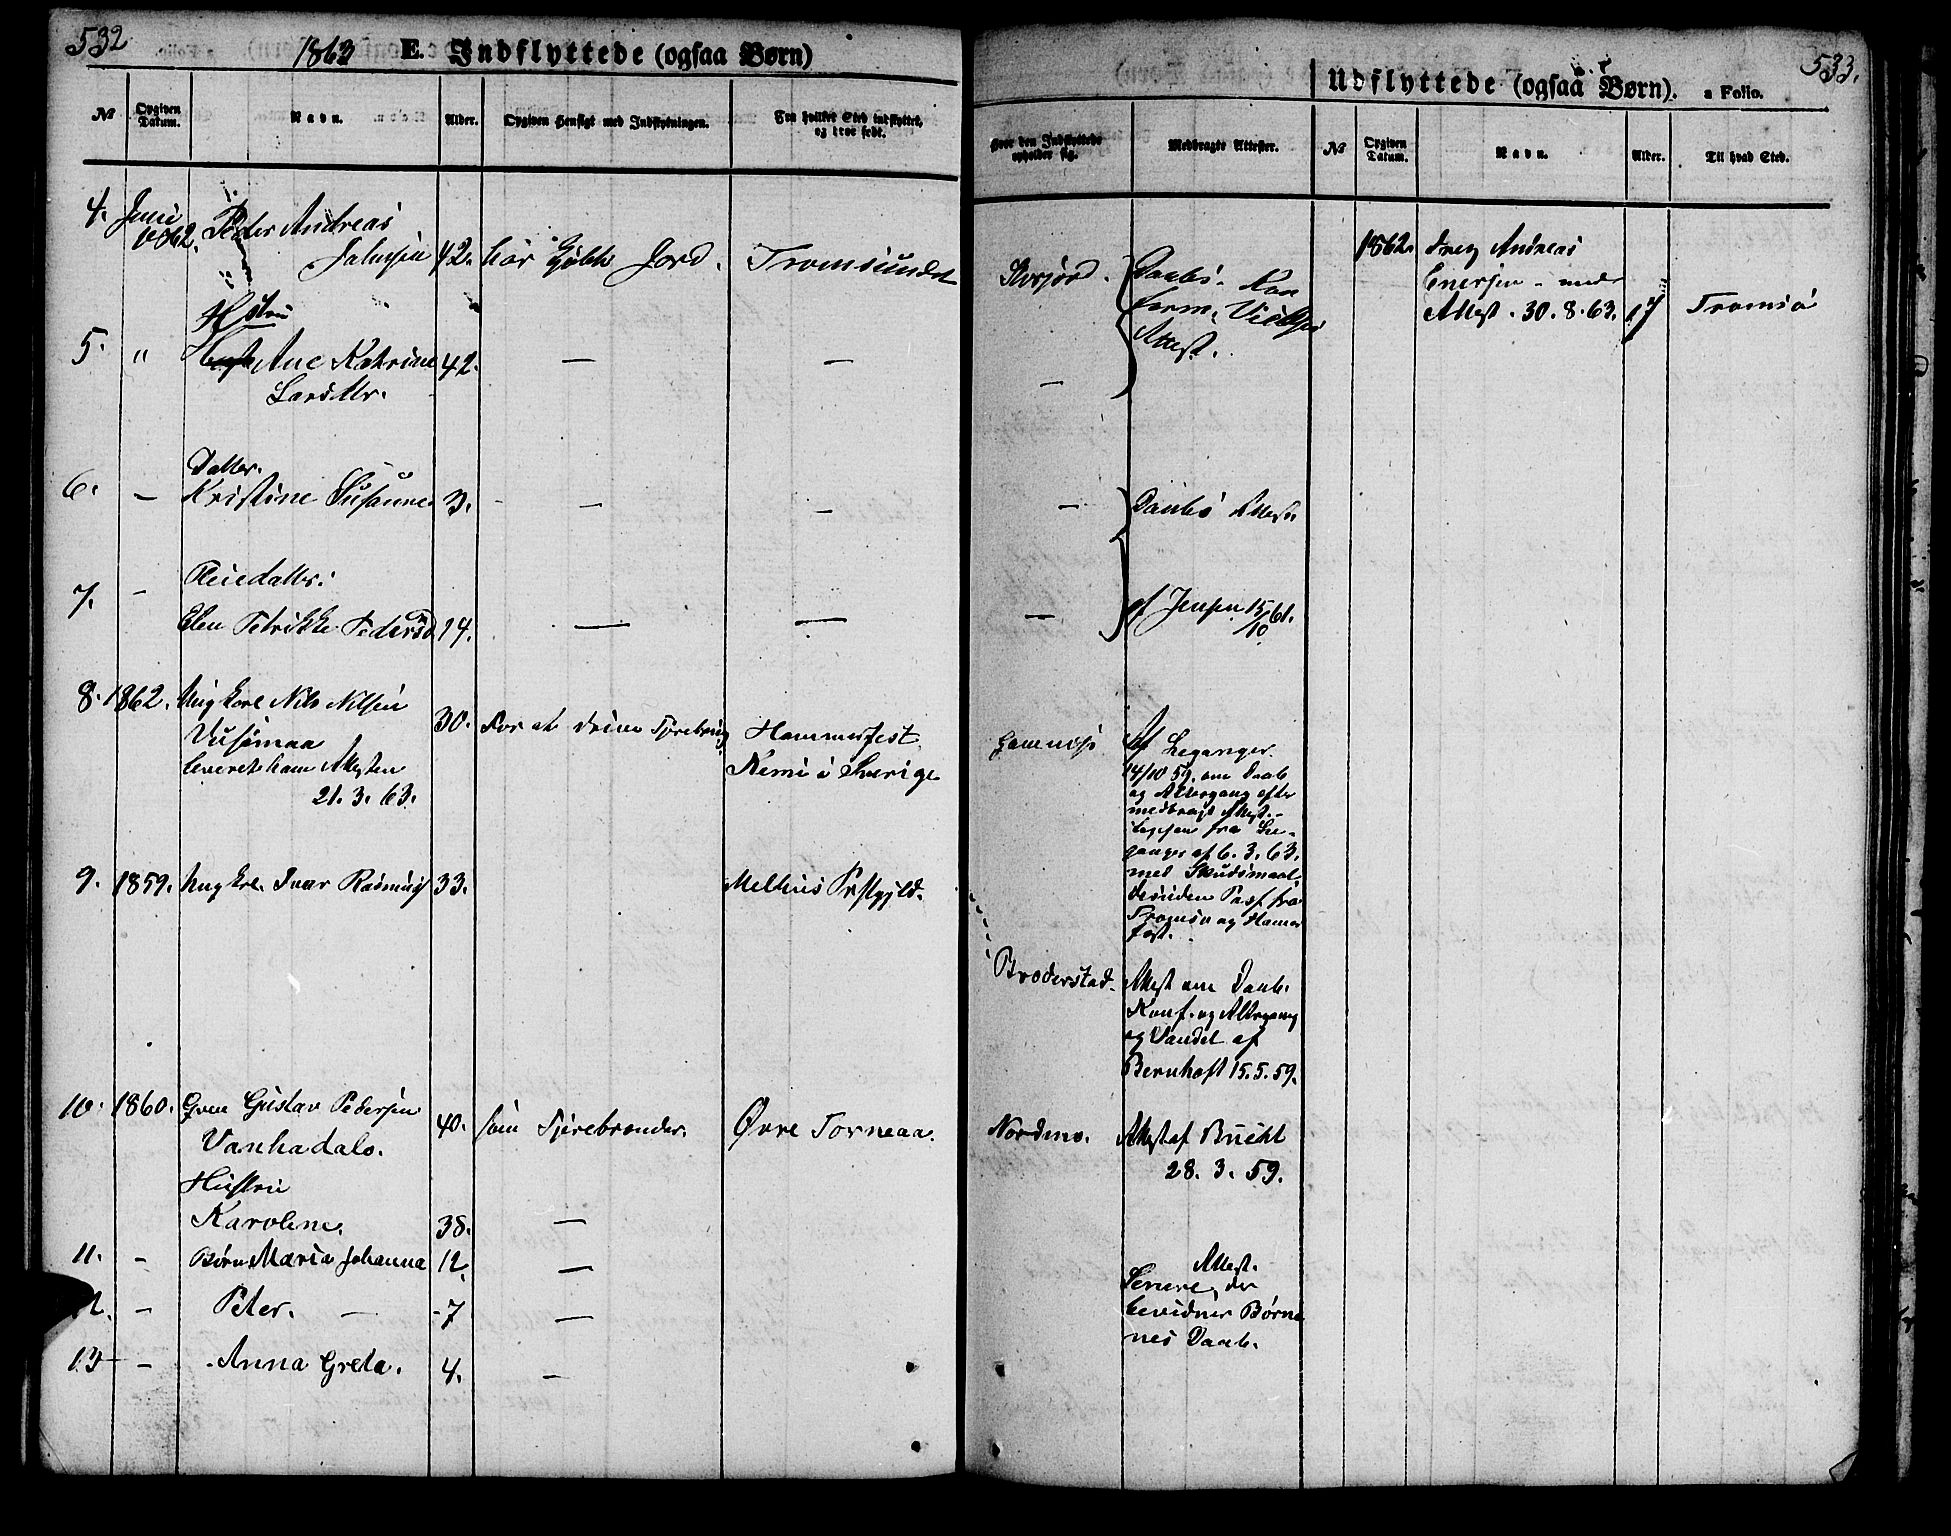 532
1863 E. Indflyttede (ogsaa Børn)
№ Opgiven Datum. Navn. Alder. Opgiven Hensigt med Indflytningen. Fra hvilket Sted indflyttet, og hvor født.
4. Juni 1862. Peder Andreas
42. har Jord. Tromsundet
Hustru
5. " Ane Katrine 42. — —
Larsdtr.
Datter.
6. — Kristine Susanne 3. — —
Pleiedatter.
7. — Elen Petrikke Pedersd 14. — —
8. 1862. Ungkarl Nils Nilsen 30. For at drive Tjærebrug Hammerfest
leveret ham Attesten Kemi i Sverige
21. 3. 63.
9. 1859. Ungkrl. Ivar Rasmus 33. Melhus Prstgjeld.
10. 1860. Gustav Pedersen 40. som Tjærebrænder. Øvre Torneaa.
Hustru
Karoline. 38. —
11. — Børn Maria Johanna 12. —
12. — Peter. — 7 —
13 — Anna Greta. 4. —
533.
Udflyttede (ogsaa Børn). a Folio.
Hvor den Indflyttede opholder sig. Medbragte Attester. № Opgiven Datum. Navn. Alder. Til hvad Sted.
1862. Dreng Andreas
Enersen – med
Attest. 30. 8. 63. 17 Tromsø
Daabs-
Attest.
—
— Daabs Attest.
— af Jensen 15/10 61.
af Leganger
14/10 59. om Daab
og Altergang efter
medbragt Attest.
fra Le-
ganger af 6. 3. 63.
med Skudsmaal
desuden Pas fra
Tromsø og Hamer
fest.
Broderstad. Attest om Daab.
Konf. og Altergang
og Vandel af
Bernhoft 15. 5. 59.
Nordmo. Attest af Bucht
28. 3. 59.
Attest.
Senere, der
bevidner Børne
nes Daab.